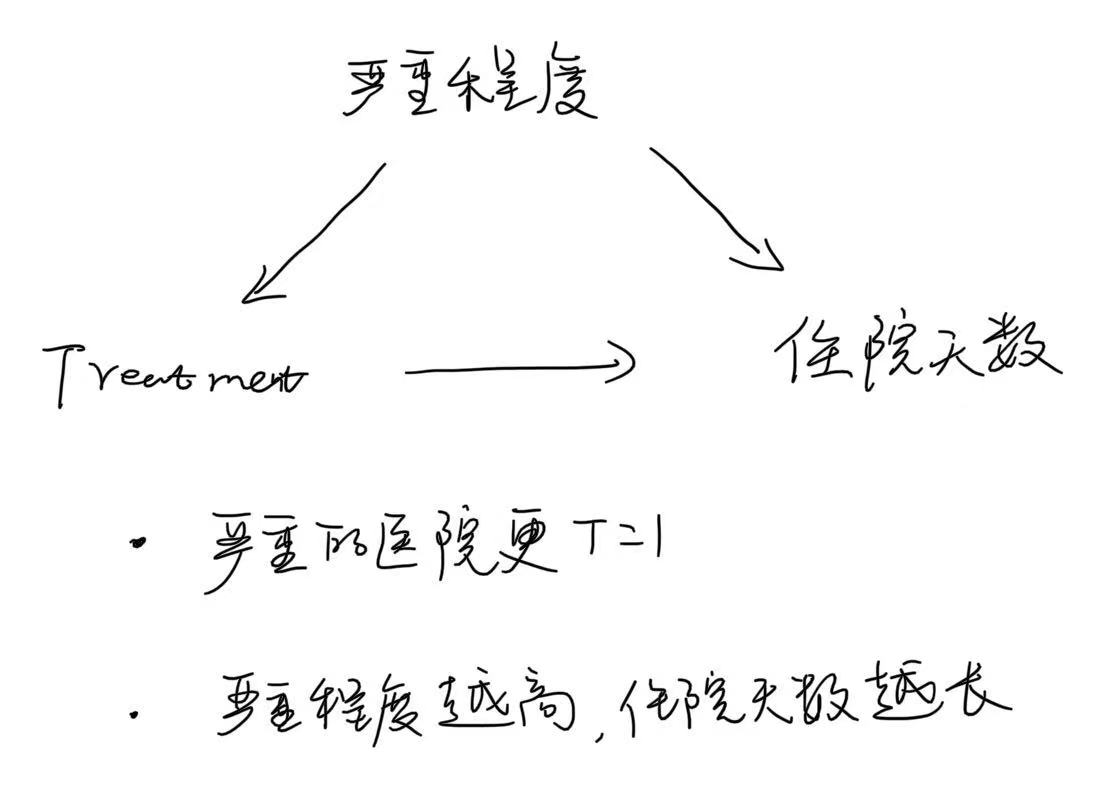 严重程度
Treatment
住院天数
· 严重的医院更 T=1
· 严重程度越高,住院天数越长